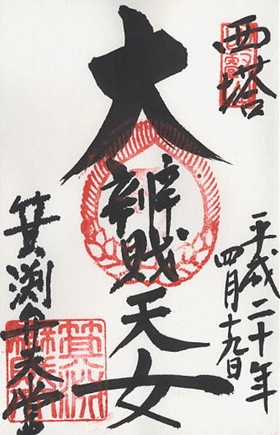 西塔
平成二十年
四月十九日
大辨財天女
箕渕弁天堂